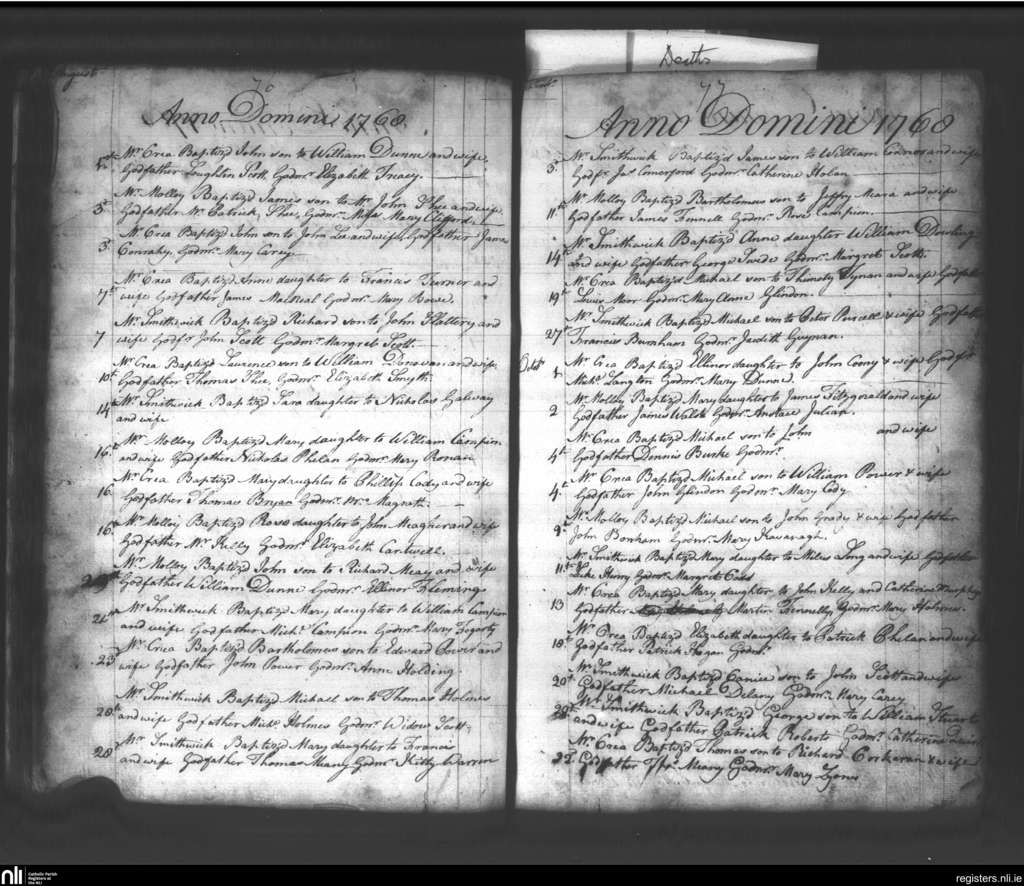 Deaths
August
70
Anno Domini 1768
2d Mr Crea Baptizd John son to William Dunne and wife
Godfather Loughlen Scott, Godmr Elizabeth Treacy.
3d Mr Molloy Baptizd James son to Mr John Shee and wife
Godfather Mr Patrick Shee, Godmr Miss Mary Clifford
3d Mr Crea Baptizd John son to John Lee and wife Godfather James
Conrahy, Godmr Mary Carey
7th Mr Crea Baptizd Anne daughter to Francis Turner and
wife Godfather James Godmr Mary Bowe.
7 Mr Smithwick Baptizd Richard son to John Slattery and
wife Godfr John Scott Godmr Margret Scott
10th Mr Crea Baptizd Laurence son to William Donovan and wife
Godfather Thomas Shee, Godmr Elizabeth Smyth
14th Mr Smithwick Baptizd Sara daughter to Nicholas Galway
and wife
16th Mr Molloy Baptizd Mary daughter to William Campion
and wife Godfather Nicholas Phelan Godmr Mary Ronan
16 Mr Crea Baptizd Mary daughter to Phillip Cody and wife
Godfather Thomas Bryan Godmr Mrs Magrath
16th Mr Molloy Baptizd Rose daughter to John Meagher and wife
Godfather Mr Kelly Godmr Elizabeth Cantwell.
Mr Molloy Baptizd John son to Richard Meay and wife
Godfather William Dunne Godmr Ellinor Fleming
21st Mr Smithwick Baptizd Mary daughter to William Campion
and wife Godfather Michl Campion Godmr Mary Fogarty
23d Mr Crea Baptizd Bartholomew son to Edward Power and
wife Godfather John Power Godmr Anne Holding.
28th Mr Smithwick Baptizd Michael son to Thomas Holmes
and wife Godfather Michl Holmes Godmr Widow Scott
28th Mr Smithwick Baptizd Mary daughter to Francis
and wife Godfather Thomas Meany Godmr Kitty Warren
77
Anno Domini 1768
3d Mr Smithwick Baptizd James son to William Connor and wife
Godfr Jas Comerford Godmr Catherine Holan
11th Mr Molloy Baptizd Bartholomew son to Jeffry Meara and wife
Godfather James Fennell Godmr Rose Campion.
14th Mr Smithwick Baptizd Anne daughter William Dowling
and wife Godfather George Swide Godmr Margret Scott
19th Mr Crea Baptizd Michael son to Thimoty Lynan and wife Godfather
Lewis Moor Godmr Mary Anne Glindon.
27th Mr Smithwick Baptizd Michael son to Peter Purcell & wife Godfather
Francis Burnham Godmr Judith Guynan.
Octobr 1 Mr Crea Baptizd Ellinor daughter to John Coony & wife Godfr
Michl Langton Godmr Mary Dunne.
2 Mr Molloy Baptizd Mary daughter to James Fitzgerald and wife
Godfather James Walsh Godmr Anstace Julian.
4th Mr Crea Baptizd Michael son to John and wife
Godfather Dennis Burke Godmr
4th Mr Crea Baptizd Michael son to William Power & wife
Godfather John Glindon Godmr Mary Cody
9th Mr Molloy Baptizd Michael son to John Grady & wife Godfather
John Bonham Godmr Mary Kavanagh.
11th Mr Smithwick Baptizd Mary daughter to Miles Long and wife Godfather
Luke Henry Godmr Margret Cass
13 Mr Crea Baptizd Mary daughter to John Kelly and Catherine Murphy
Godfather Martin Fennelly Godmr Mary Holmes
18th Mr Crea Baptizd Elizabeth daughter to Patrick Phelan and wife
Godfather Patrick Hogan Godmr
20th Mr Smithwick Baptizd Canice son to John Scott and wife
Godfather Michael Delany Godmr Mary Carey
Mr Smithwick Baptizd George son to William Stuart
and wife Godfather Patrick Roberts Godmr Catherine
Mr Crea Baptizd Thomas son to Richard Corkeran & wife
Godfather Thos Meany Godmr Mary Lyons
nli
Catholic Parish
Registers at
the NLI
registers.nli.ie